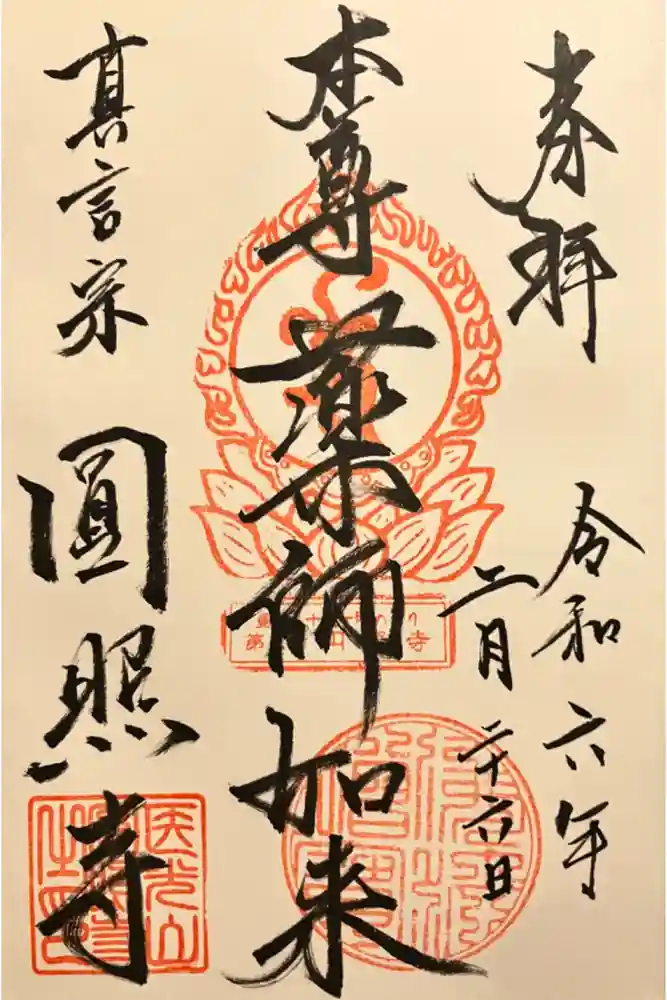 奉拝
令和六年
二月二十六日
本尊薬師如来
真言宗
圓照寺